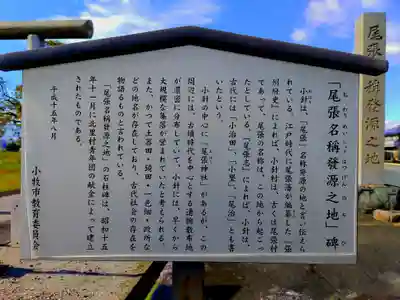 尾張名稱發源之地
「尾張名稱發源之地」碑
おわりめいしょうはつげんのち ひ
小針は、「尾張」名称発源の地と言い伝えら
れている。江戸時代に尾張藩が編纂した『張
州府史』によれば、小針村は、古くは尾張村
であって、尾張の名称は、この地から起こっ
たとしている。『尾張名』によれば、小針は、
古代には「小治田」、「小墾」、「尾治」とも書
いたという。
小針の中心に「尾張神社」があるが、この
周辺には、古墳時代を中心とする遺物散布地
が濃密に分布していて、小針には、早くから
大規模な集落が営まれていたと考えられる。
また、かつて土器田・鏡田・一色畑・政所な
どの地名が存在しており、古代社会の存在を
物語るものと言われている。
「尾張名稱發源之地」の石柱碑は、昭和十五
年十一月に北里村青年団の献金によって建立
されたものである。
平成十五年八月
小牧市教育委員会